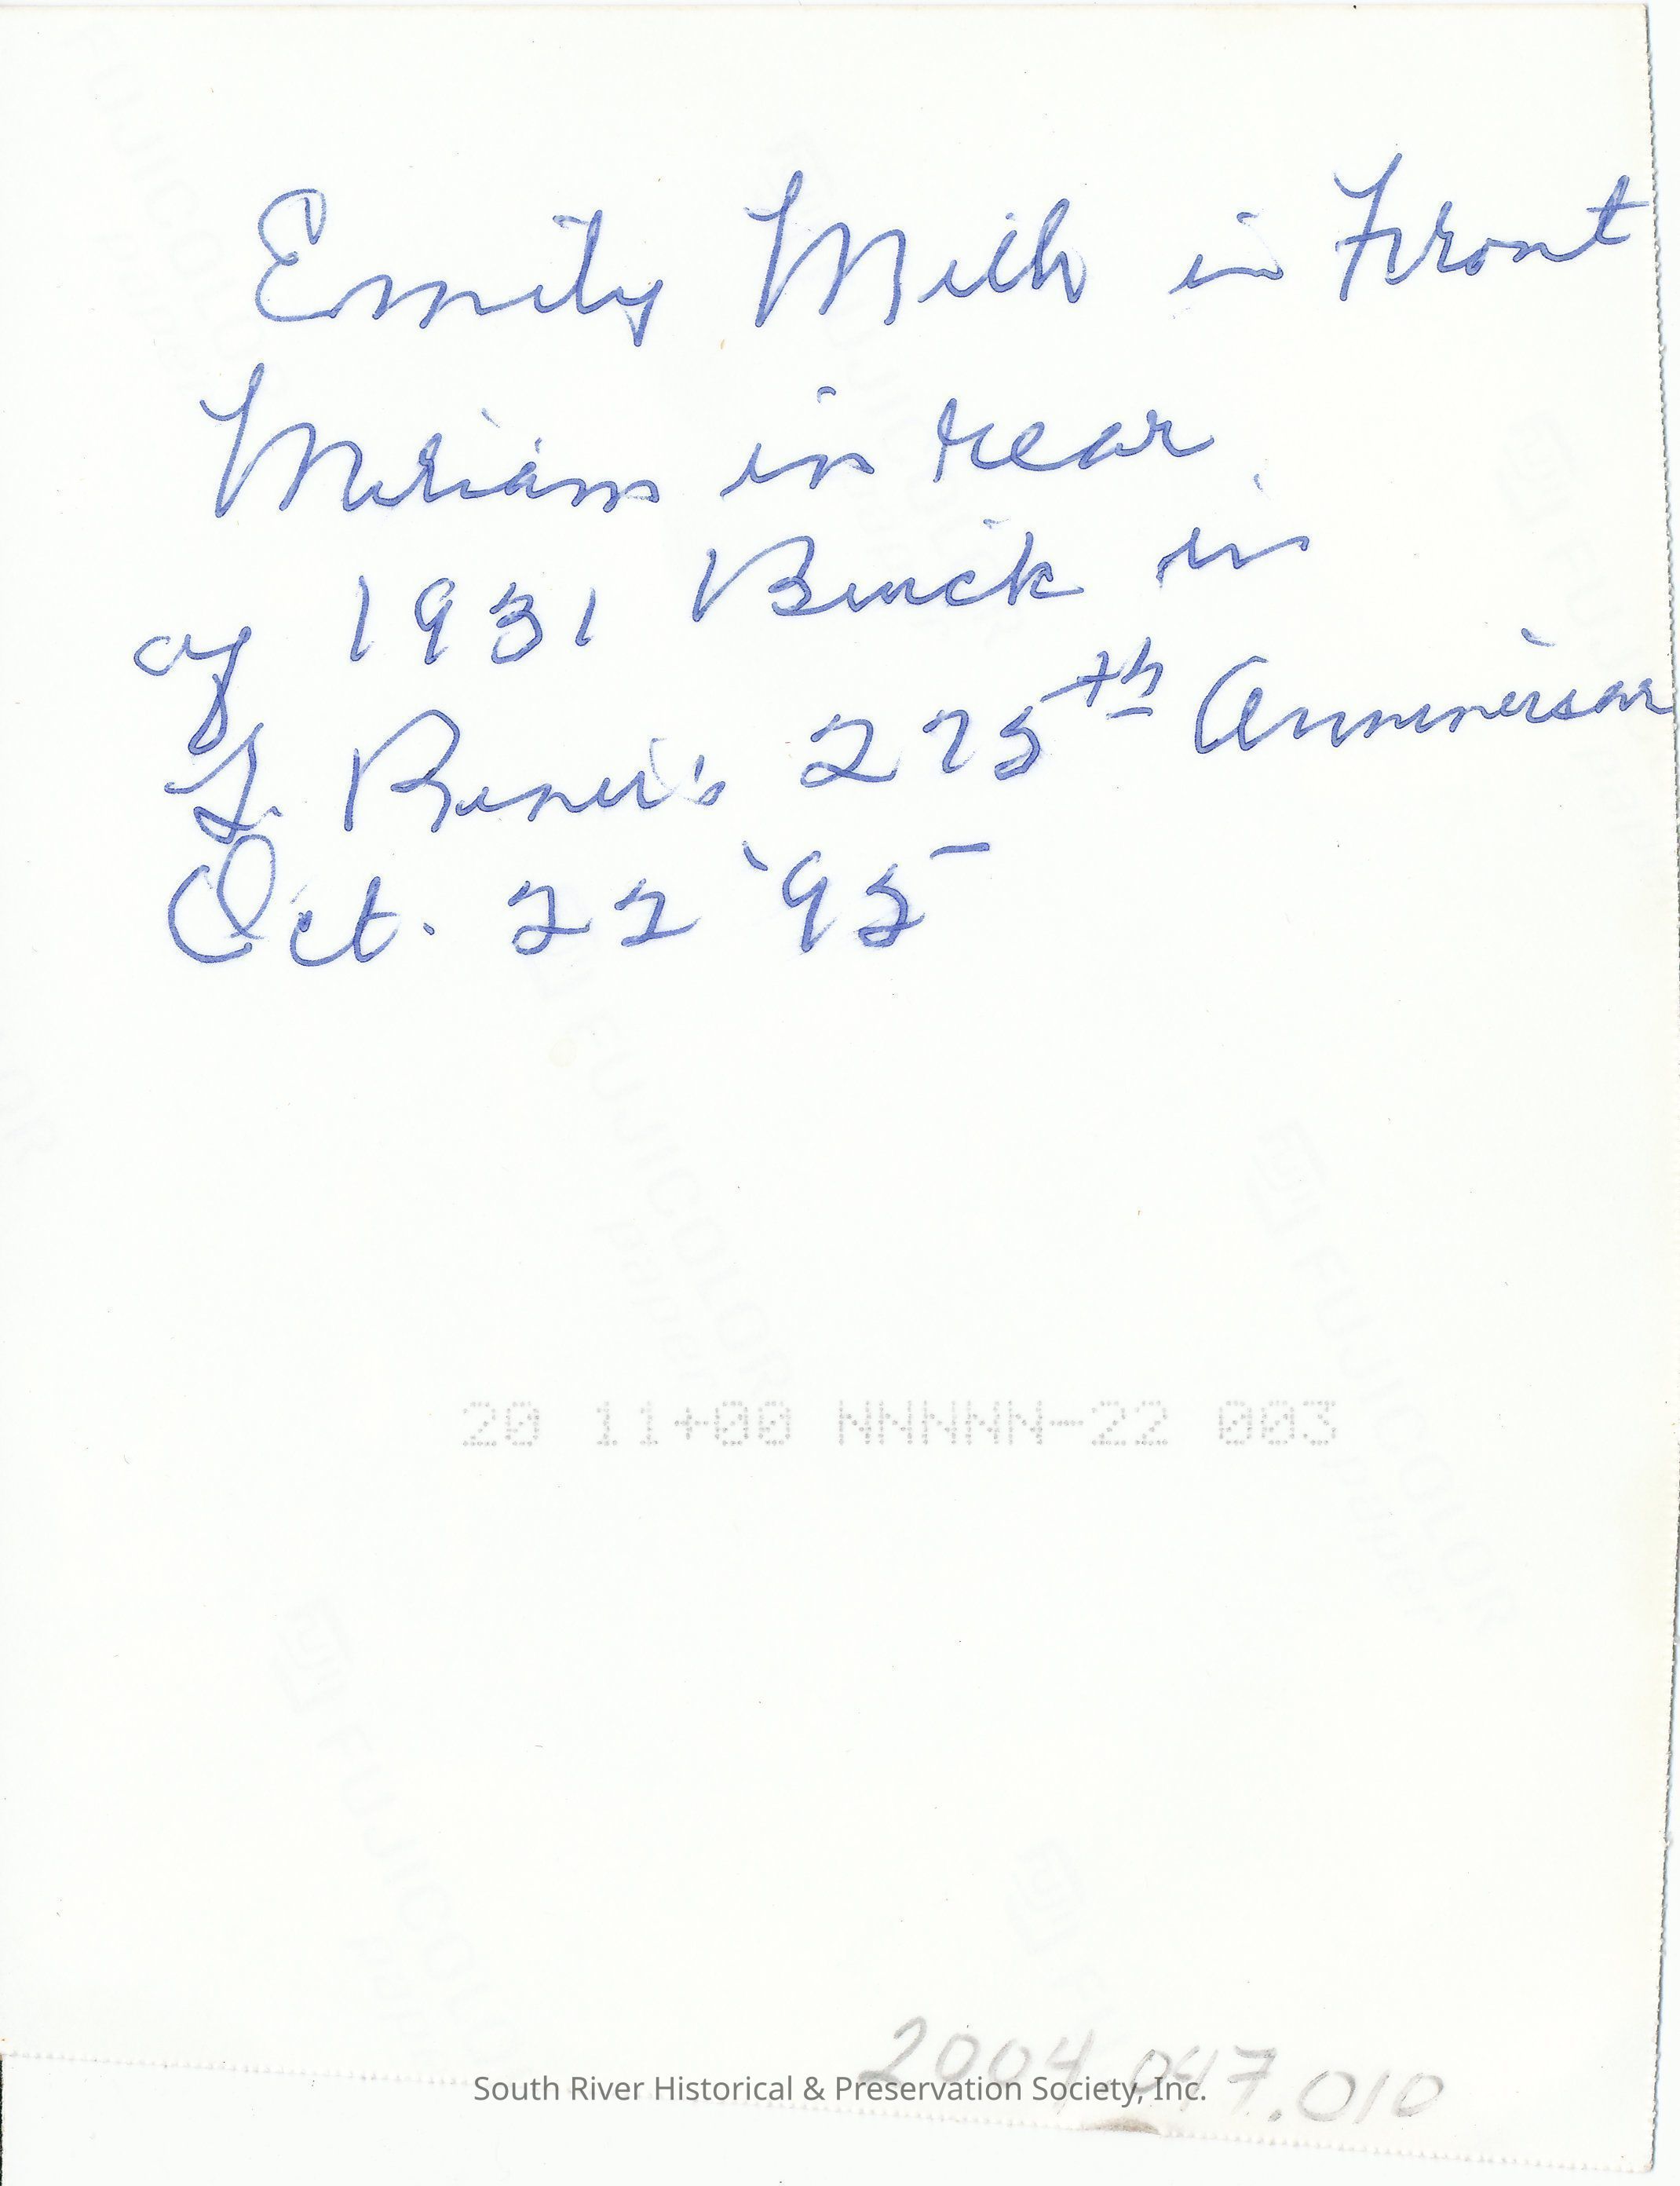 Emily Milh in Front
Miriam in rear
of 1931 Buick in
S. River's 275th Anniversar
Oct. 22 '95
20 11+00 NNNNN-22 003
2004.047.010
South River Historical & Preservation Society, Inc.
FUJICOLOR
paper